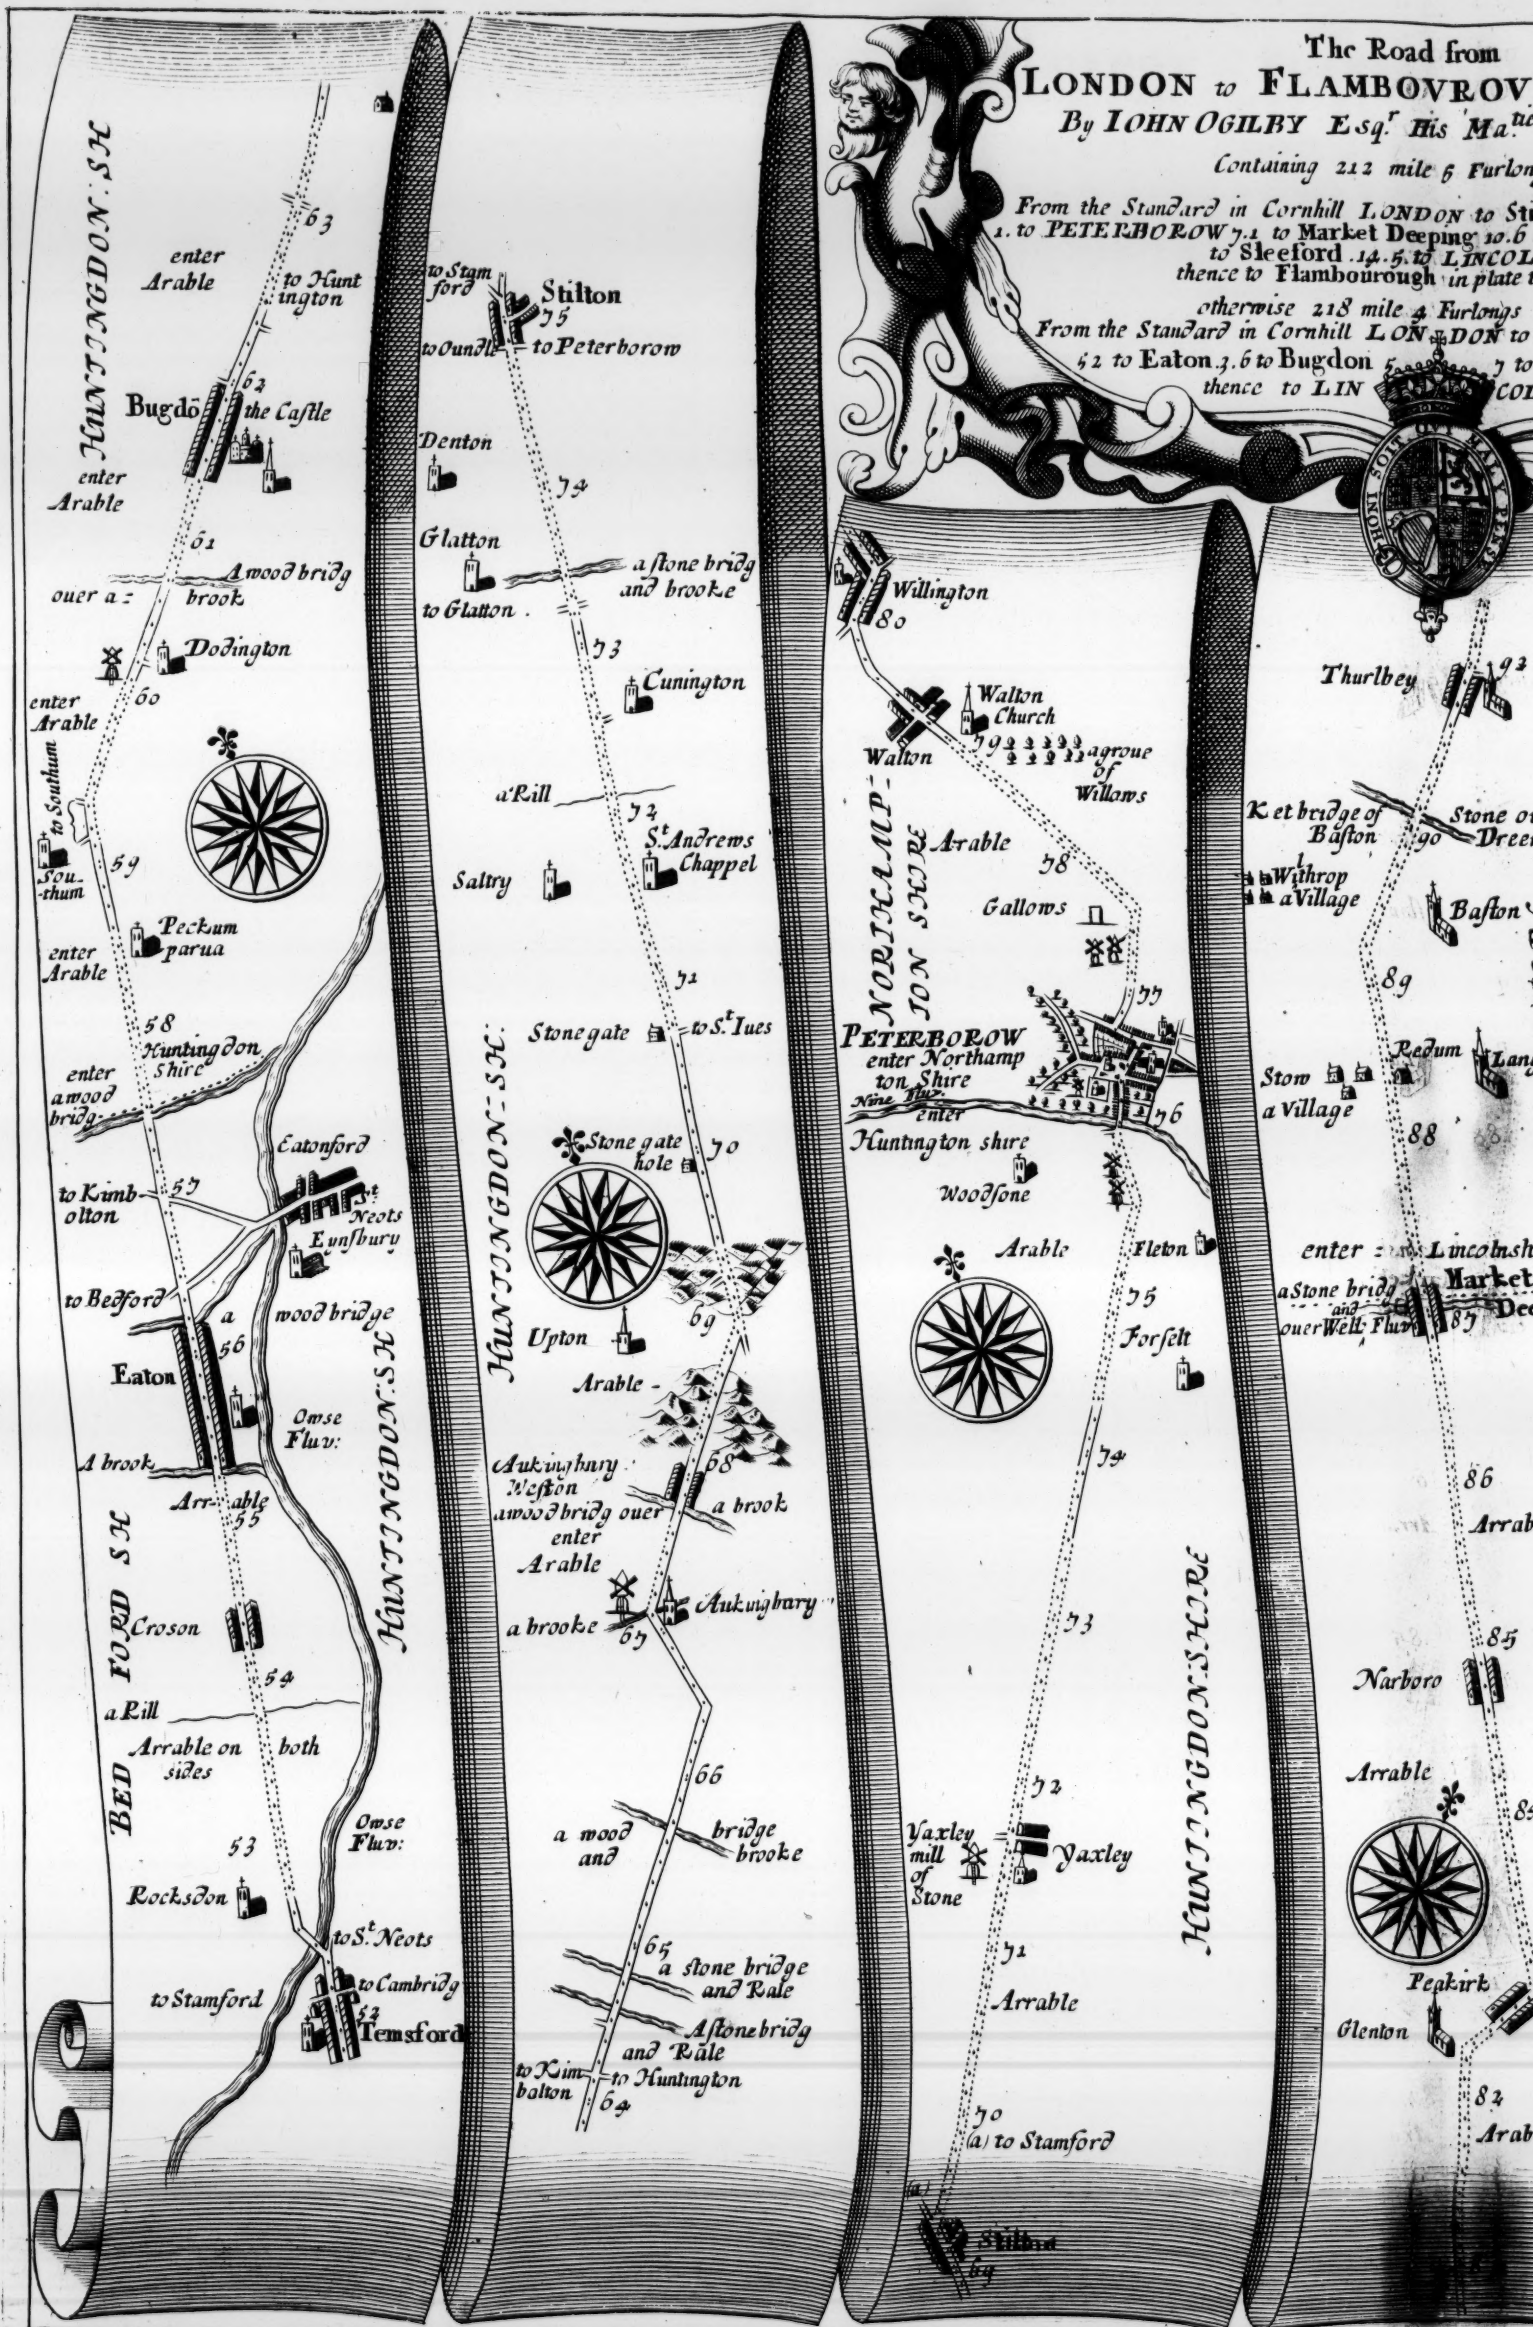 The Road from
LONDON to FLAMBOVROV
By IOHN OGILBY Esqr. His Ma.tie
Containing 212 mile 5 Furlon
From the Standard in Cornhill LONDON to Sti
1. to PETERBOROW 7.1 to Market Deeping 10.6
to Sleeford .14.5. to LINCOL
thence to Flambourough in plate
otherwise 218 mile 4 Furlongs
From the Standard in Cornhill LONDON to
52 to Eaton 3.6 to Bugdon 5 7 to
thence to LIN COL
HONI SOIT QVI MAL Y PENSE
HUNTINGDON: SH
63
enter
Arable
to Hunt
ington
62
Bugdō
the Castle
enter
Arable
61
A wood bridg
ouer a: brook
Dodington
60
enter
Arable
to Southum
59
Sou-
-thum
Peckum
parua
enter
Arable
58
Huntingdon
Shire
enter
a wood
bridg
Eatonford
57
to Kimb
olton
St
Neots
Eynsbury
to Bedford
a wood bridge
56
Eaton
Owse
Fluv:
HUNTINGDON: SH
A brook
Arr- able
55
BED FORD SH
Croson
54
a Rill
Arrable on both
sides
Owse
Fluv:
53
Rocksdon
to St. Neots
to Cambridg
to Stamford
52
Temsford
to Stam
ford
Stilton
75
to Oundle
to Peterborow
Denton
74
Glatton
a stone bridg
and brooke
to Glatton
73
Cunington
a Rill
72
St. Andrews
Chappel
Saltry
71
Stonegate
to St. Iues
HUNTINGDON:-SH:
Stone gate
hole
70
69
Upton
Arable
Weston
68
a wood bridg ouer a brook
enter
Arable
a brooke
67
66
a wood bridge
and brooke
65
a stone bridge
and Rale
A stone bridg
and Rale
to Kim
balton
to Huntington
64
Willington
80
Walton
Church
79
Walton
a groue
of
Willows
NORTHAMP-
TON SHIRE
Arable
78
Gallows
77
PETERBOROW
enter Northamp
ton Shire
Nine Fluv.
enter
76
Huntington shire
Woodstone
Arable
Fleton
75
Forselt
74
HUNTINGDON: SHIRE
73
72
Yaxley
mill
of
Stone
Yaxley
71
Arrable
70
(a) to Stamford
(a)
Stilton
69
Thurlbey
92
Ket bridge of
Baston
Stone o
90
Dreen
Withrop
a Village
Baston
89
Redum
Lang
Stow
a Village
88
enter : Lincolnsh
a Stone bridg
and
ouer Well: Fluv
Market
Dee
87
86
Arrab
85
Narboro
Arrable
Peakirk
Glenton
82
Arab